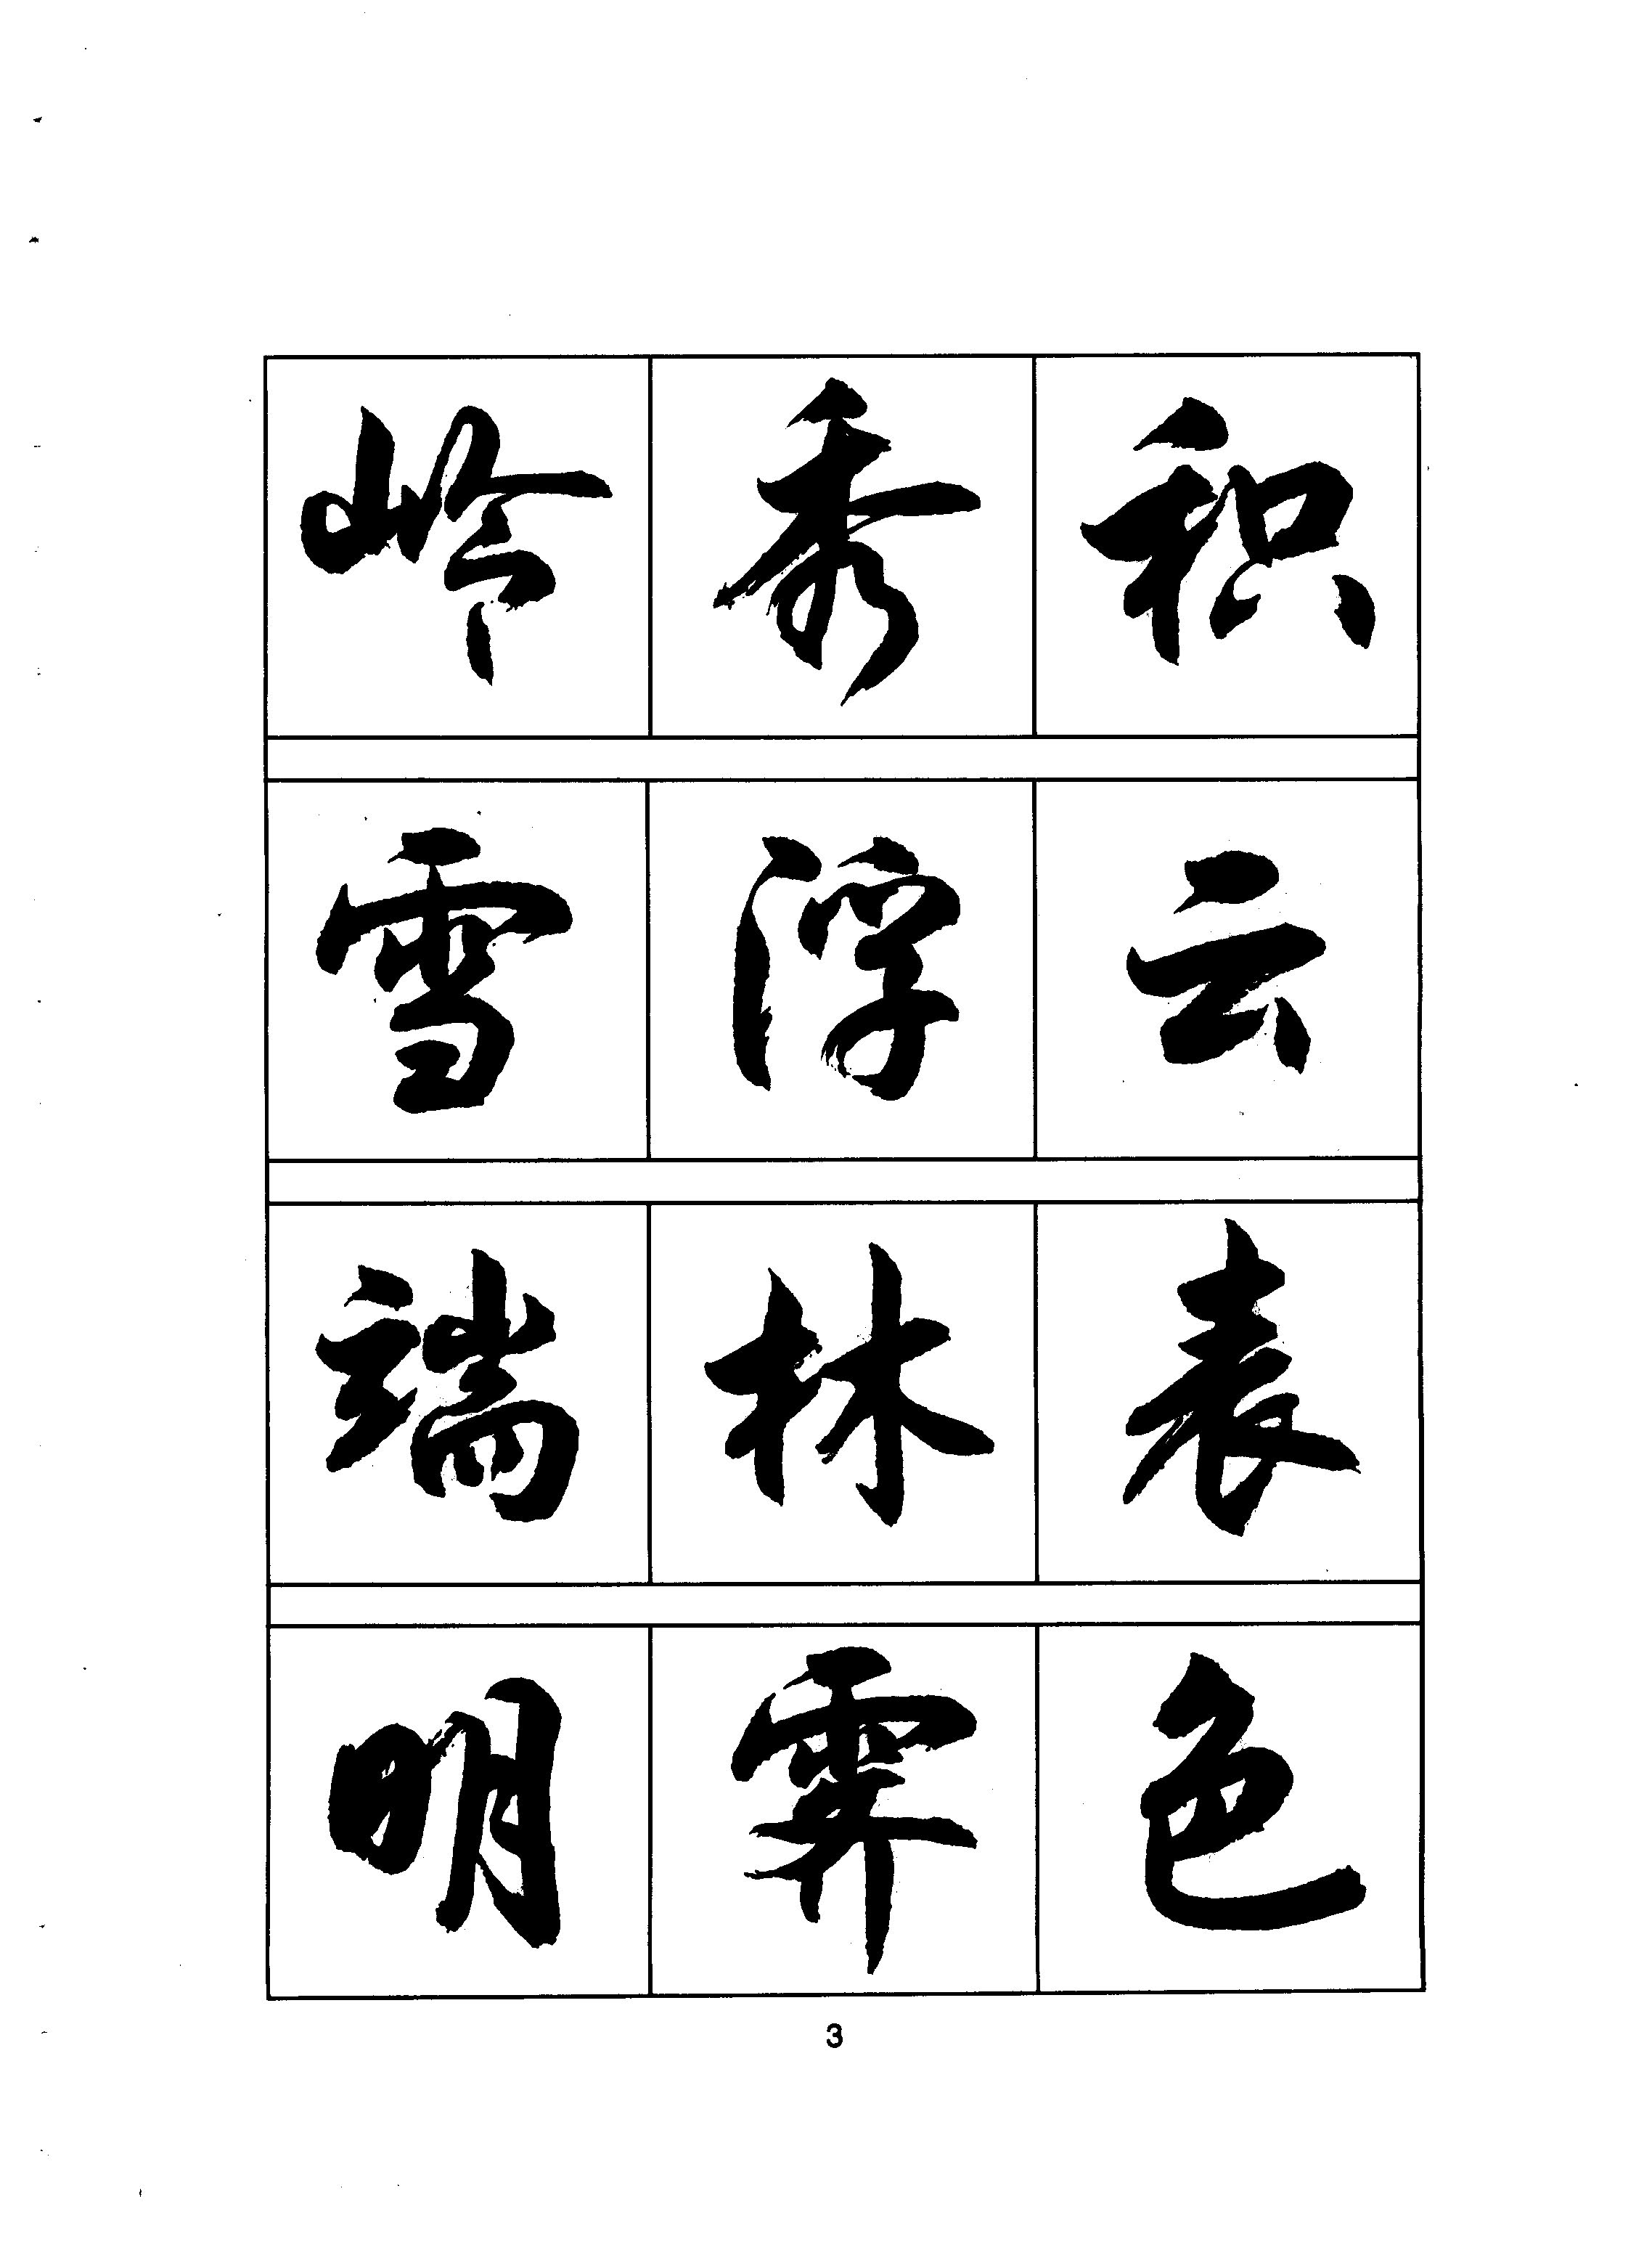 岭秀积
雪浮云
端林表
明霁色
3